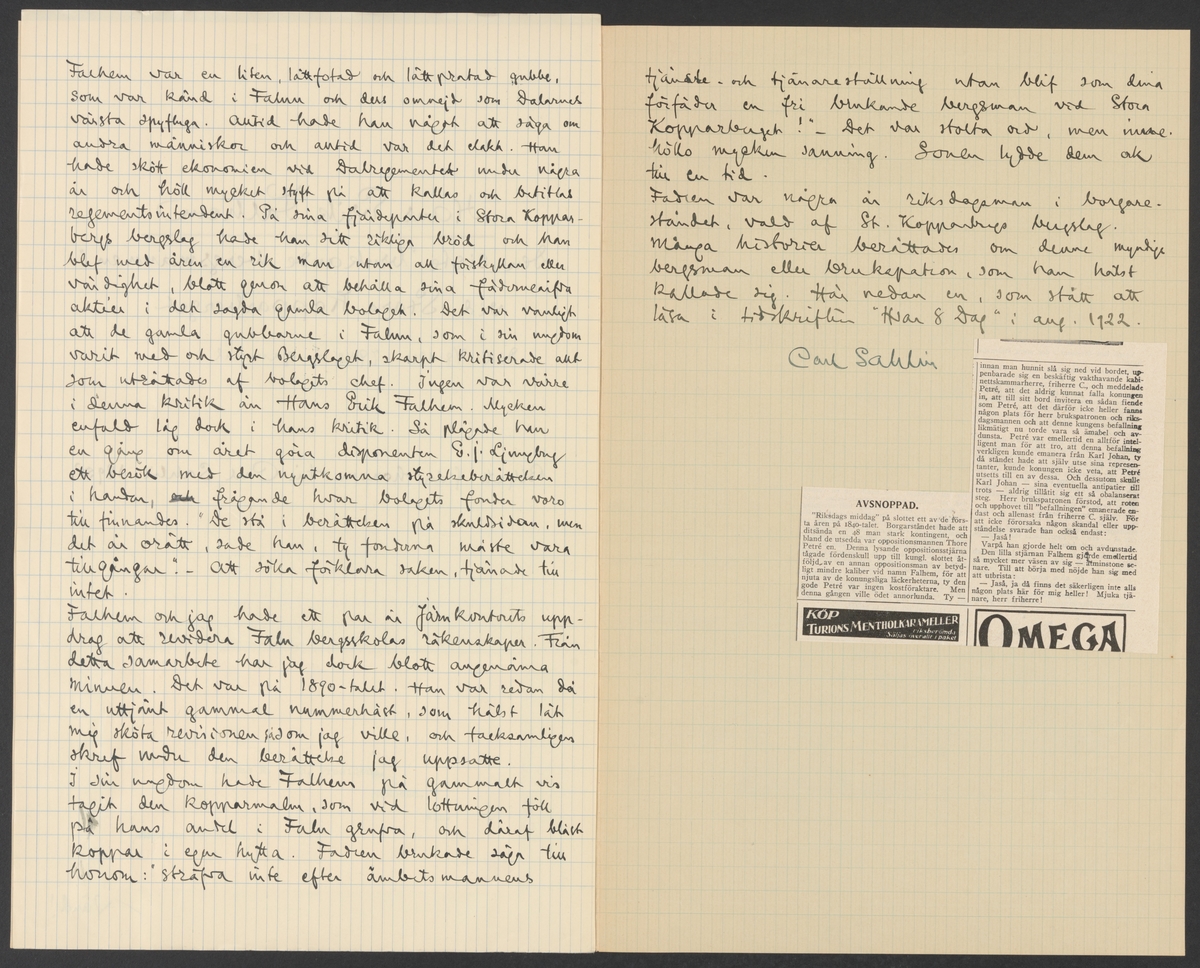 Falhem var en liten, lättfotad och lättpratad gubbe,
som var känd i Falun och dess omnejd som Dalarnes
värsta spyfluga. Alltid hade han något att säga om
andra människor och alltid var det elakt. Han
hade skött ekonomien vid Dalregementet under några
år och höll mycket styft på att kallas och betitlas
regementsintendent. På sina fjärdeparter i Stora Koppar-
bergs bergslag hade han sitt rikliga bröd och han
blef med åren en rik man utan all förskyllan eller
värdighet, blott genom att behålla sina fäderneärfda
aktier i det sagda gamla bolaget. Det var vanligt
att de gamla gubbarne i Falun, som i sin ungdom
varit med och styrt Bergslaget, skarpt kritiserade allt
som uträttades af bolagets chef. Ingen var värre
i denna kritik än Hans Erik Falhem. Mycken
enfald låg dock i hans kritik. Så plägade han
en gång om året göra disponenten E. J. Ljungberg
ett besök med den nyutkomna styrelseberättelsen
i handen, frågande hvar bolagets fonder voro
till finnandes. "De stå i berättelsen på skuldsidan, men
det är orätt, sade han, ty fonderna måste vara
tillgångar." – Att söka förklara saken, tjänade till
intet.
Falhem och jag hade ett par år Järnkontorets upp-
drag att revidera Falu bergsskolas räkenskaper. Från
detta samarbete har jag dock blott angenäma
minnen. Det var på 1890-talet. Han var redan då
en uttjänt gammal nummerhäst, som hälst lät
mig sköta revisionen såsom jag ville, och tacksamligen
skref under den berättelse jag uppsatte.
I sin ungdom hade Falhem på gammalt vis
tagit den kopparmalm, som vid lottningen föll
på hans andel i Falu grufva, och däraf blåst
koppar i egen hytta. Fadren brukade säga till
honom: "sträfva inte efter ämbetsmannens
tjänste- och tjänareställning utan blif som dina
förfäder en fri brukande bergsman vid Stora
Kopparberget!" – Det var stolta ord, men inne-
höllo mycken sanning. Sonen lydde dem ock
till en tid.
Fadren var några år riksdagsman i borgare-
ståndet, vald af St. Kopparbergs bergslag.
Många historier berättades om denne myndige
bergsman eller brukspatron, som han hälst
kallade sig. Här nedan en, som stått att
läsa i tidskriften "Hvar 8 Dag" i aug. 1922.
Carl Sahlin
AVSNOPPAD.
"Riksdags middag" på slottet ett av de förs-
ta åren på 1840-talet. Borgarståndet hade att
ditsända en 48 man stark kontingent, och
bland de utsedda var oppositionsmannen Thore
Petré en. Denna lysande oppositionsstjärna
tågade fördenskull upp till kungl. slottet åt-
följd av en annan oppositionsman av betyd-
ligt mindre kaliber vid namn Falhem, för att
njuta av de konungsliga läckerheterna, ty den
gode Petré var ingen kostföraktare. Men
denna gången ville ödet annorlunda. Ty —
innan man hunnit slå sig ned vid bordet, up-
penbarade sig en beskäftig vakthavande kabi-
nettskammarherre, friherre C., och meddelade
Petré, att det aldrig kunnat falla konungen
in, att till sitt bord invitera en sådan fiende
som Petré, att det därför icke heller fanns
någon plats för herr brukspatronen och riks-
dagsmannen och att denne kungens befallning
likmätigt nu torde vara så amabel och av-
dunsta. Petré var emellertid en alltför intel-
ligent man för att tro, att denna befallning
verkligen kunde emanera från Karl Johan, ty
då ståndet hade att själv utse sina represen-
tanter, kunde konungen icke veta, att Petré
utsetts till en av dessa. Och dessutom skulle
Karl Johan — sina eventuella antipatier till
trots — aldrig tillåtit sig ett så obalanserat
steg. Herr brukspatronen förstod, att roten
och upphovet till "befallningen" emanerade en-
dast och allenast från friherre C. själv. För
att icke förorsaka någon skandal eller upp-
ståndelse svarade han också endast:
— Jaså!
Varpå han gjorde helt om och avdunstade.
Den lilla stjärnan Falhem gjorde emellertid
så mycket mer väsen av sig — åtminstone se-
nare. Till att börja med nöjde han sig med
att utbrista:
— Jaså, ja då finns det säkerligen inte alls
någon plats här för mig heller! Mjuka tjä-
nare, herr friherre!
KÖP
TURIONS MENTHOLKARAMELLER
riksberömda
Säljas överallt i paket
OMEGA